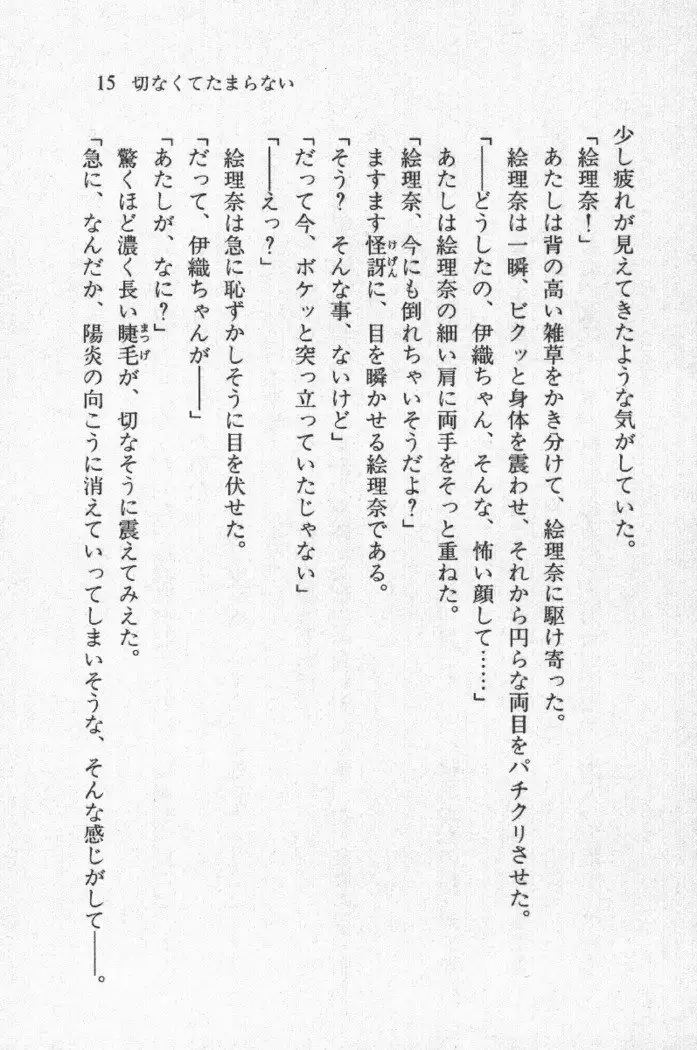 15 切なくてたまらない
少し疲れが見えてきたような気がしていた。
「絵理奈！」
あたしは背の高い雑草をかき分けて、絵理奈に駆け寄った。
絵理奈は一瞬、ビクッと身体を震わせ、それから円らな両目をパチクリさせた。
「――どうしたの、伊織ちゃん、そんな、怖い顔して……」
あたしは絵理奈の細い肩に両手をそっと重ねた。
「絵理奈、今にも倒れちゃいそうだよ？」
ますます怪訝に、目を瞬かせる絵理奈である。
けげん
「そう？　そんな事、ないけど」
「だって今、ボケッと突っ立っていたじゃない」
「――えっ？」
絵理奈は急に恥ずかしそうに目を伏せた。
「だって、伊織ちゃんが――」
「あたしが、なに？」
驚くほど濃く長い睫毛が、切なそうに震えてみえた。
まつげ
「急に、なんだか、陽炎の向こうに消えていってしまいそうな、そんな感じがして――。